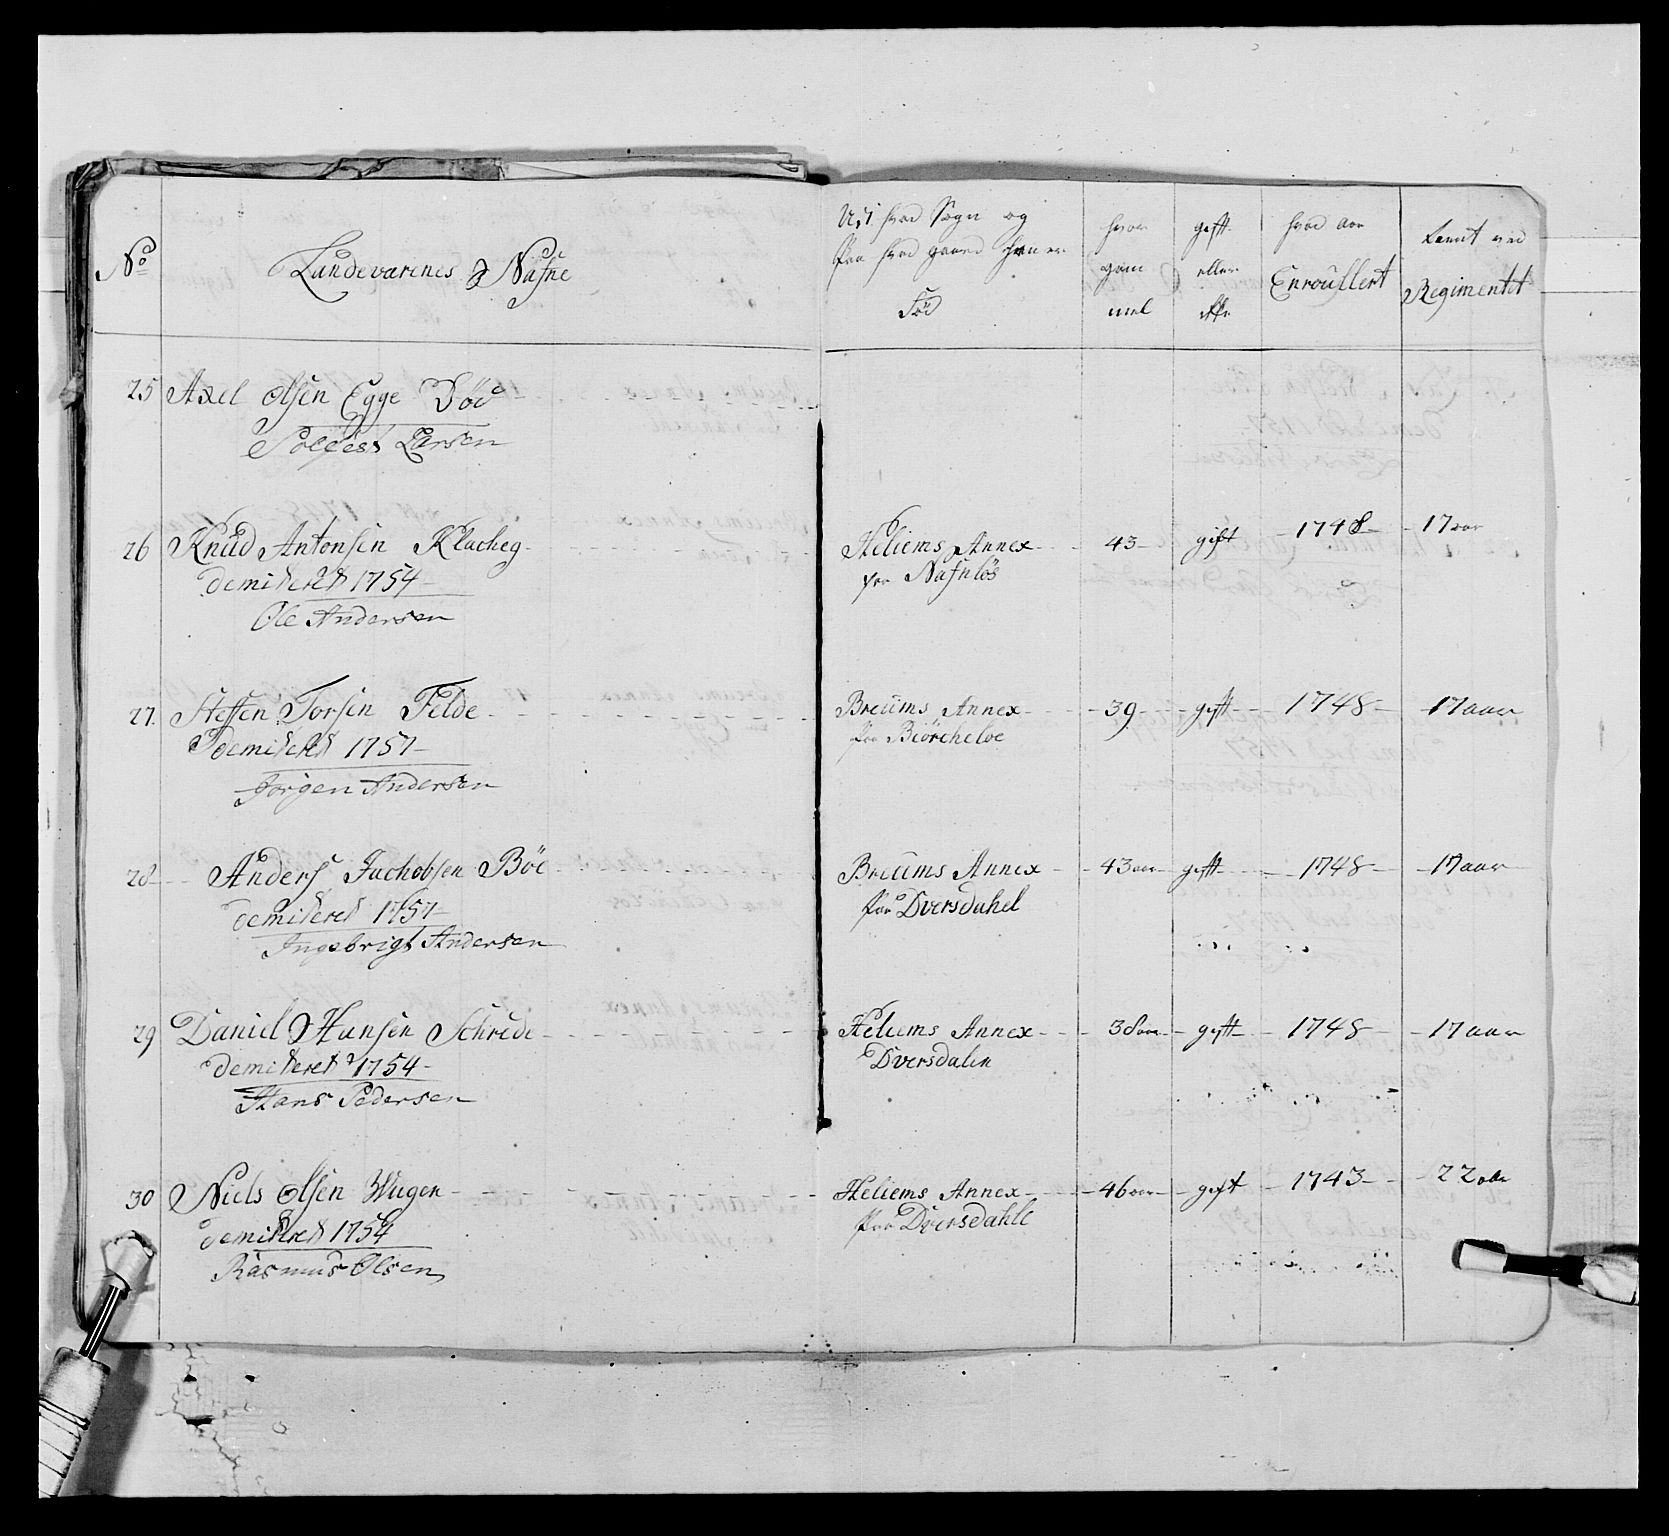 No
Landevarenes Nafne
Udi hvad Sogn og
Paa hvad gaard Han er
Föd
hvor
gam
mel
gift
eller
ikke
hvad aar
Enroullert
tient ved
Regimentet
25 Axel Olsen Egge Död
Larsen
26 Knud Antonsen Klacheg
Heliems Annex 43 gift 1748 17 aar
demiteret 1754
paa Nafnlös
Ole Andersen
27. Steffen Torsen Felde
Breums Annex 39 gift 1748 17 aar
demiteret 1757
paa Biörcheloe
Jörgen Andersen
28 Anders Jachobsen Böe
Breums Annex 43 aar gift 1748 17 aar
demiteret 1757
paa Dversdahel
Ingebrigt Andersen
29 Daniel Hansen Schrede
Heliems Annex 38 aar gift 1748 17 aar
demiteret 1754
Dversdalen
Hans Pedersen
30 Niels Olsen Wugen
Heliems Annex 46 aar gift 1743 22 aar
demiteret 1754
paa Dversdahle
Rasmus Olsen